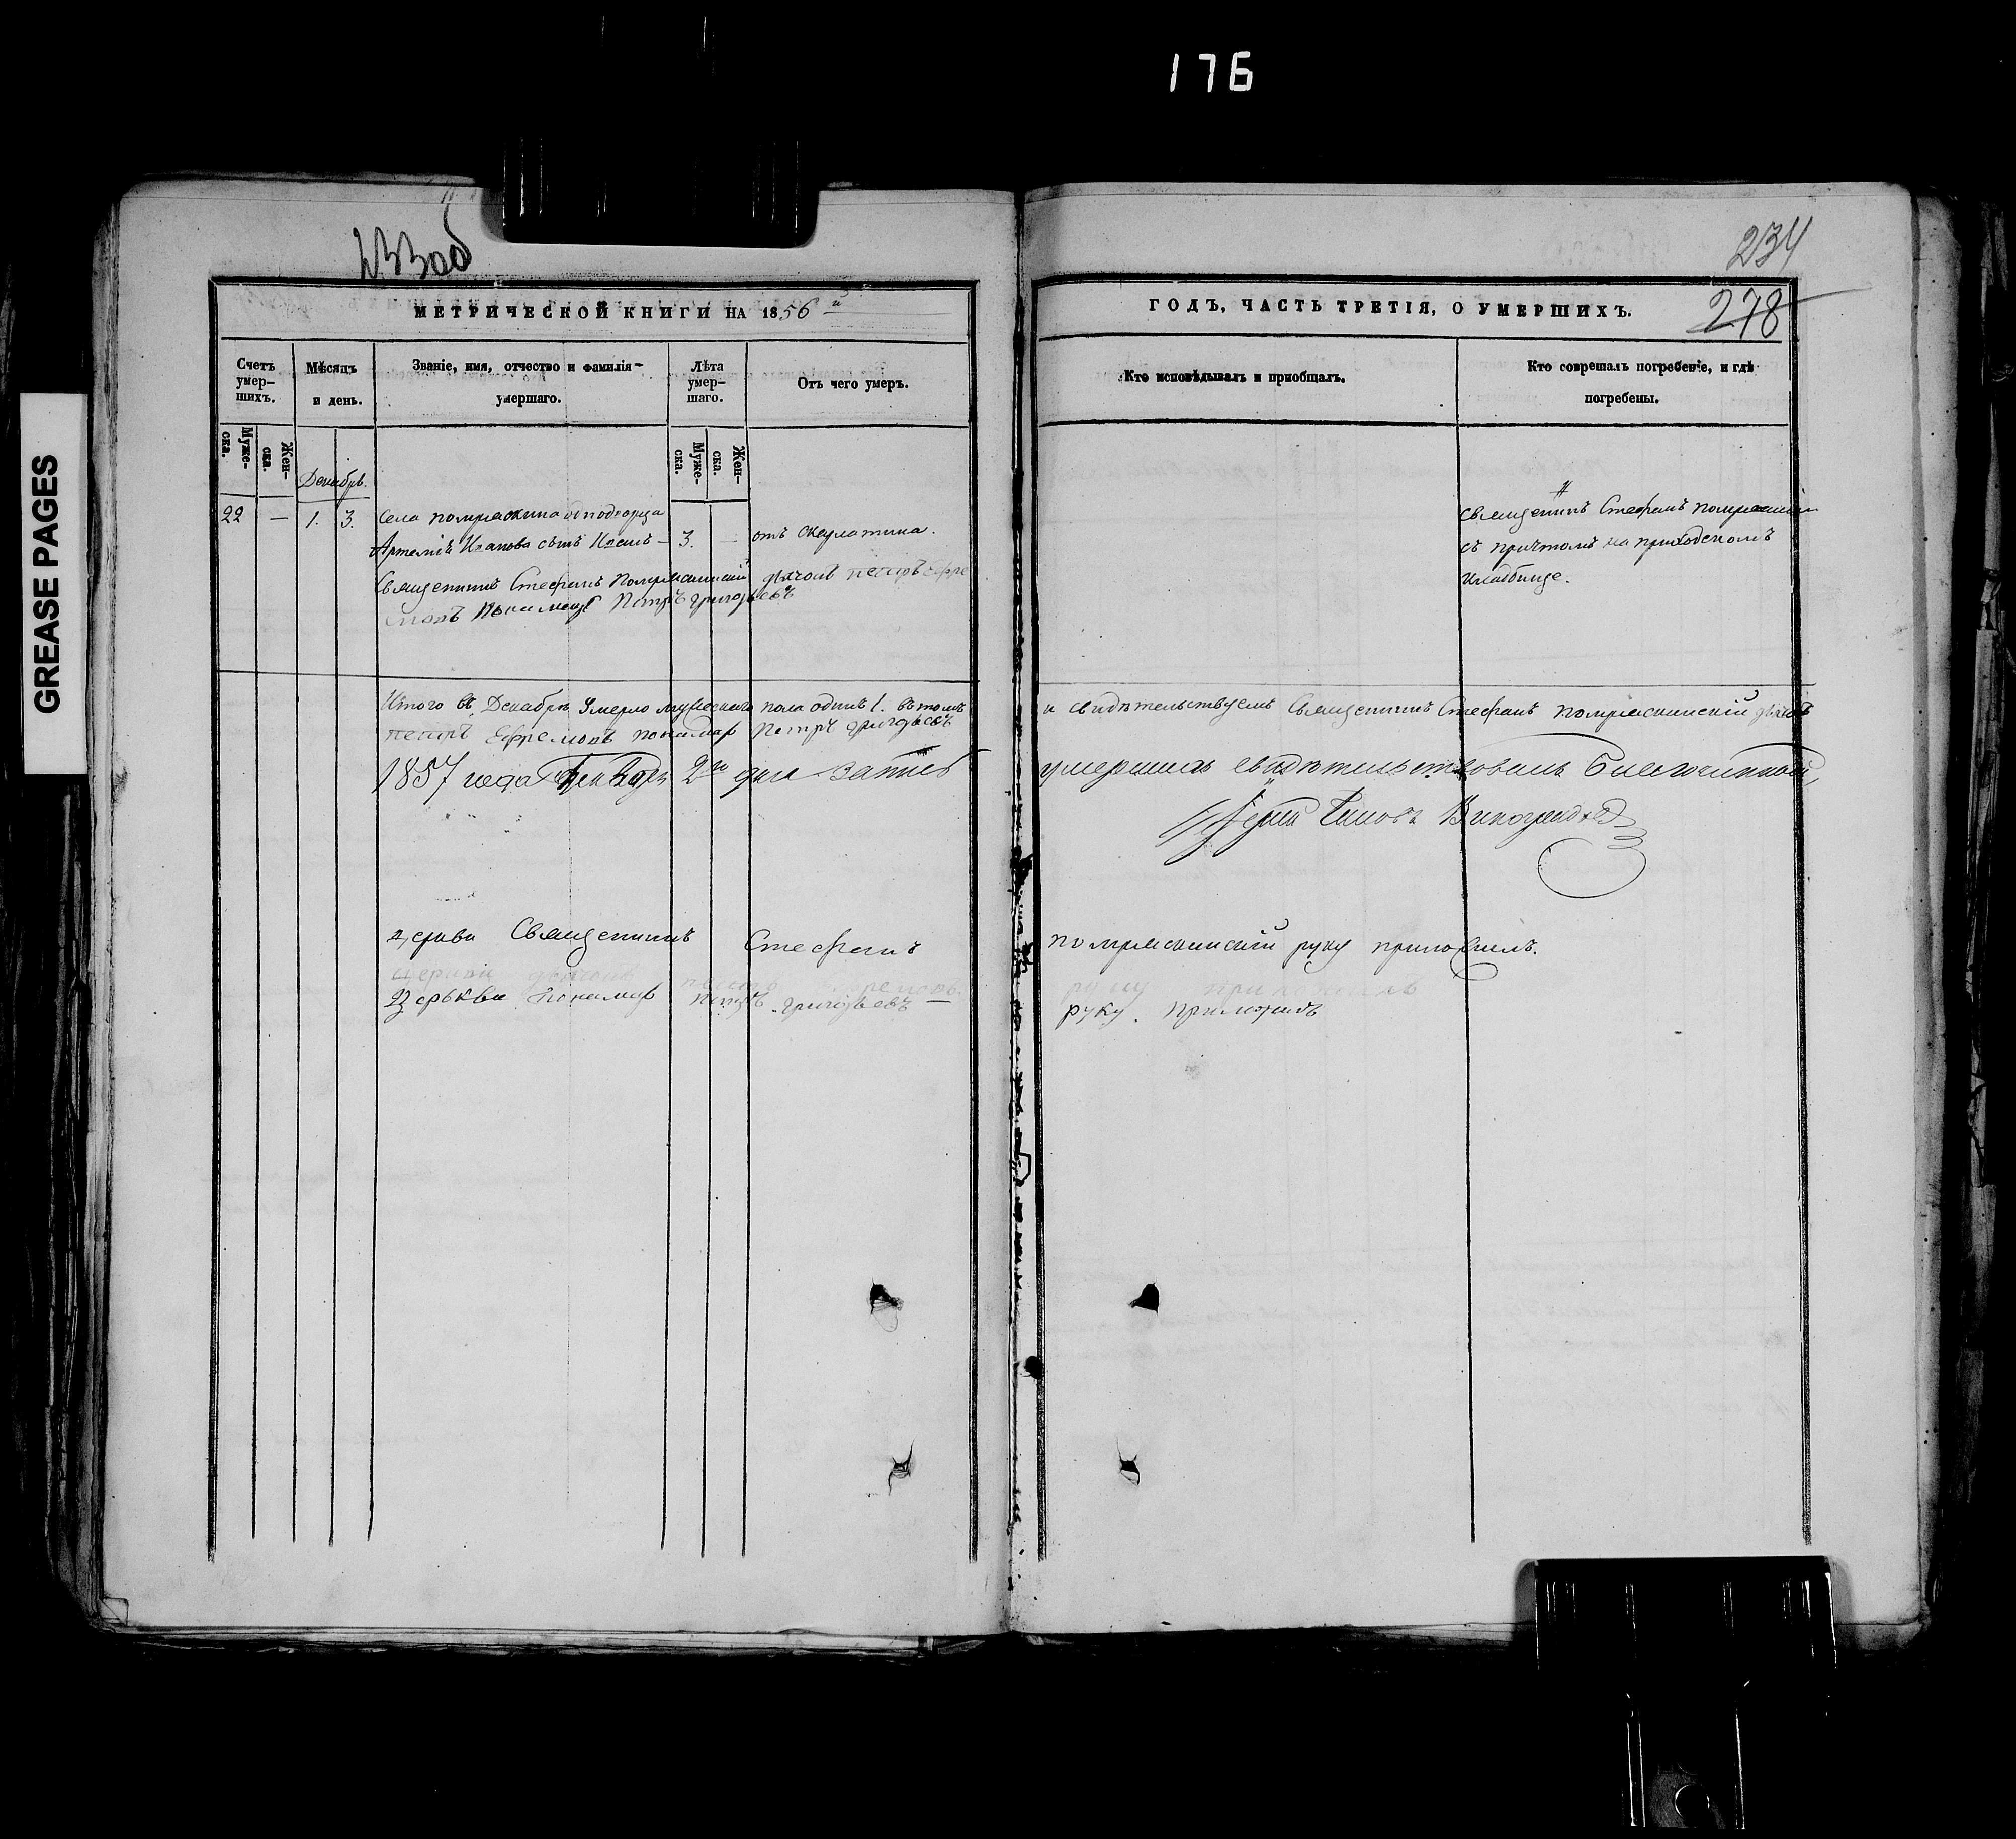 176
GREASE PAGES
233об
МЕТРИЧЕСКОЙ КНИГИ НА 1856й
Счетъ умер-
шихъ.
Мѣсяцъ
и день.
Званіе, имя, отчество и фамилія
умершаго.
Лѣта
умер-
шаго.
Отъ чего умеръ.
Муже-
ска.
Жен-
ска.
Муже-
ска.
Жен-
ска.
Декабрь.
22 — 1. 3. Села однодворца
Артемія Иванова сынъ — 3. — отъ скарлатина.
Священникъ Стефанъ дьячокъ Петръ Ефре
мовъ Пономарь Петръ Григорьевъ
Итого въ Декабрѣ умерло мужескаго пола одинъ 1. въ томъ
Петръ Ефремовъ пономарь Петръ Григорьевъ
1857 года Генваря 2го дня запись
Церкви Священникъ Стефанъ
церкви дьячокъ Петръ Ефремовъ
Церькви Пономарь Петръ Григорьевъ —
234
278
ГОДЪ, ЧАСТЬ ТРЕТІЯ, О УМЕРШИХЪ.
Кто исповѣдывалъ и пріобщалъ.
Кто соврешалъ погребеніе, и гдѣ
погребены.
Священникъ Стефанъ
съ причтомъ на приходскомъ
кладбище.
и свидѣтельствуемъ Священникъ Стефанъ дьячокъ
умершихъ свидѣтельствовалъ Благочинной
Виноградовъ
руку приложилъ.
руку приложилъ
руку. приложилъ